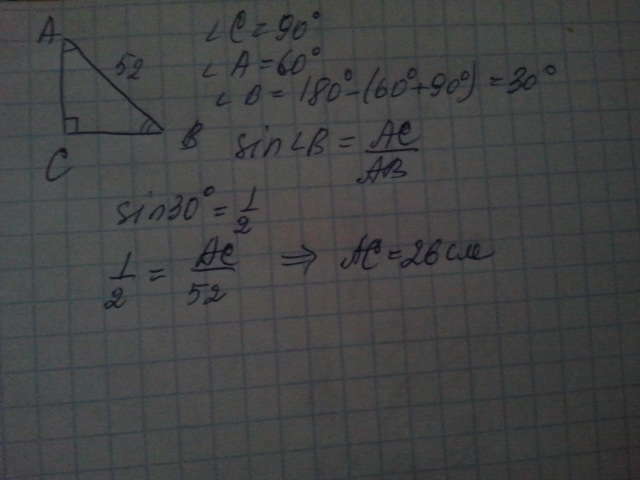 A
52
C
B
∠C = 90°
∠A = 60°
∠B = 180° - (60° + 90°) = 30°
sin∠B = AC/AB
sin30° = 1/2
1/2 = AC/52 ⇒ AC = 26 см